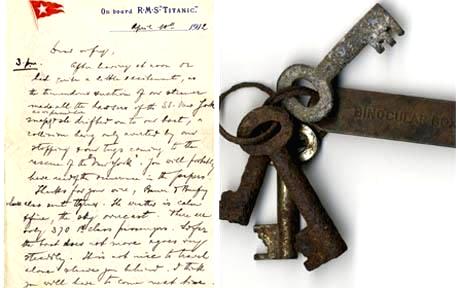 On board R.M.S "TITANIC."
April 10th 1912
3. pm. After leaving at noon we
had quite a little excitement, as
the tremendous suction of our steamer
made all the hawsers of the SS. New York
snap & she drifted on to our boat, a
collision being only averted by our
stopping & our tugs coming to the
rescue of the "New York". You will probably
have read of the in the papers.
Thanks for your one,
class sent theirs. The weather is calm
& fine, the sky overcast. There are
only 370 1st class passengers. So far
the boat does not move & goes very
steadily. It is not nice to travel
alone & leave you behind. I think
you will have to come next time.
BINOCULAR BOX